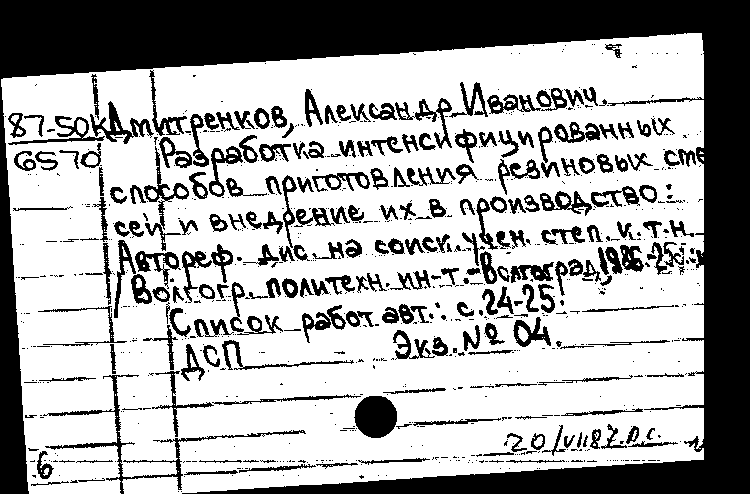 87-50К Дмитренков, Александр Иванович.
6570 Разработка интенсифицированных
способов приготовления резиновых сме
сей и внедрение их в производство:
Автореф. дис. на соиск. учен. степ. к.т.н.
/Волгогр. политехн. ин-т.-Волгоград, 1986.-25с.:
Список работ авт.: с.24-25.
ДСП Экз. № 04.
20/VII87. В.С.
6